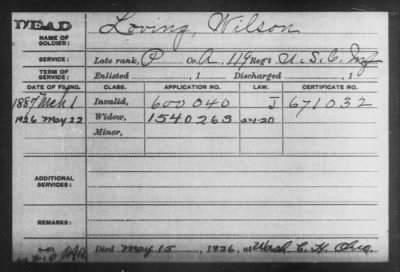 DEAD
NAME OF SOLDIER: Loving, Wilson
SERVICE: Late rank, P Co. A, 119 Reg't U.S.C. Inf
TERM OF SERVICE: Enlisted , 1 Discharged , 1
DATE OF FILING. CLASS. APPLICATION NO. LAW. CERTIFICATE NO.
1887 Mch 1 Invalid, 600040 J 671032
1926 May 22 Widow, 1540263 5-1-20
Minor,
ADDITIONAL SERVICES:
REMARKS:
Died May 15, 1926, at Wash. C. H. Ohio.